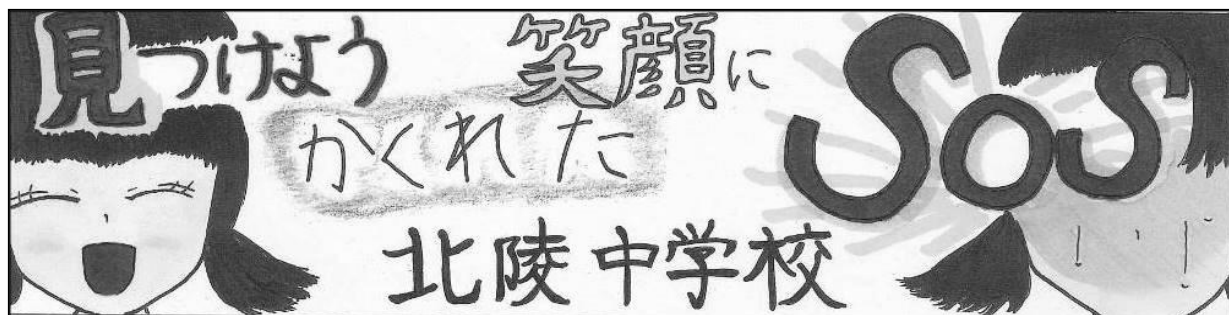 見つけよう 笑顔に
かくれた SOS
北陵中学校